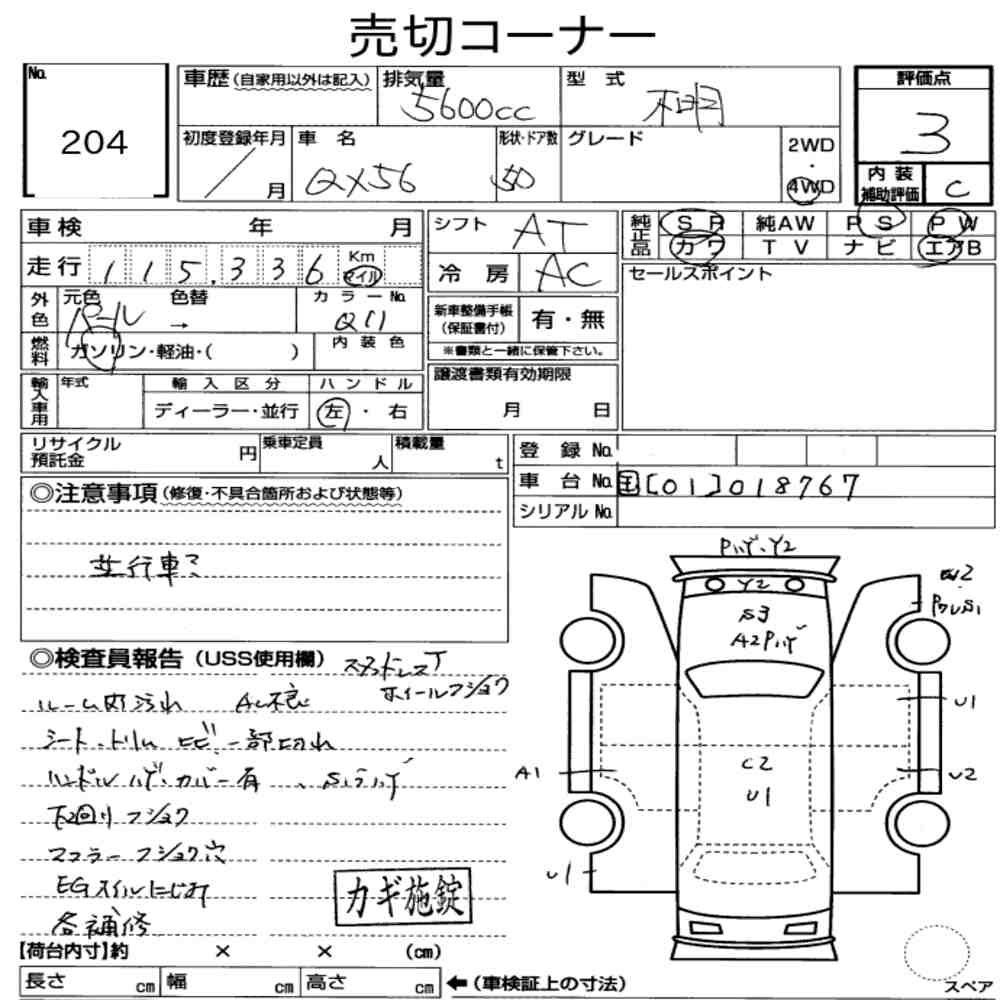 売切コーナー
No. 204
車歴(自家用以外は記入) 排気量 5600cc 型式 不明
評価点 3
初度登録年月 / 月 車名 QX56 形状・ドア数 5D グレード 2WD・4WD
内装補助評価 C
車検 年 月
走行 115,336 Km マイル
外色 元色 パール 色替 → カラーNo. Q11
燃料 ガソリン・軽油・( ) 内装色
輸入車用 年式 輸入区分 ハンドル
ディーラー・並行 左・右
シフト AT
冷房 AC
新車整備手帳(保証書付) 有・無
※書類と一緒に保管下さい。
譲渡書類有効期限
月 日
純正品 SR 純AW PS PW
カワ TV ナビ エアB
セールスポイント
リサイクル預託金 円 乗車定員 人 積載量 t
登録No.
車台No. 国[01]018767
シリアルNo.
◎注意事項(修復・不具合箇所および状態等)
並行車?
◎検査員報告(USS使用欄) スタッドレスT
ルーム内汚れ AC不良 ホイールフショク
シート・トリム ヒビ・一部切れ
ハンドルハゲ・カバー有
下回りフショク
マフラーフショク穴
EGオイルにじみ
各補修
カギ施錠
【荷台内寸】約 × × (cm)
長さ cm 幅 cm 高さ cm ←(車検証上の寸法)
Pハゲ・Y2
Y2
S3
A2Pハゲ
W2
U1
A1
C2
U1
U2
U1
スペア